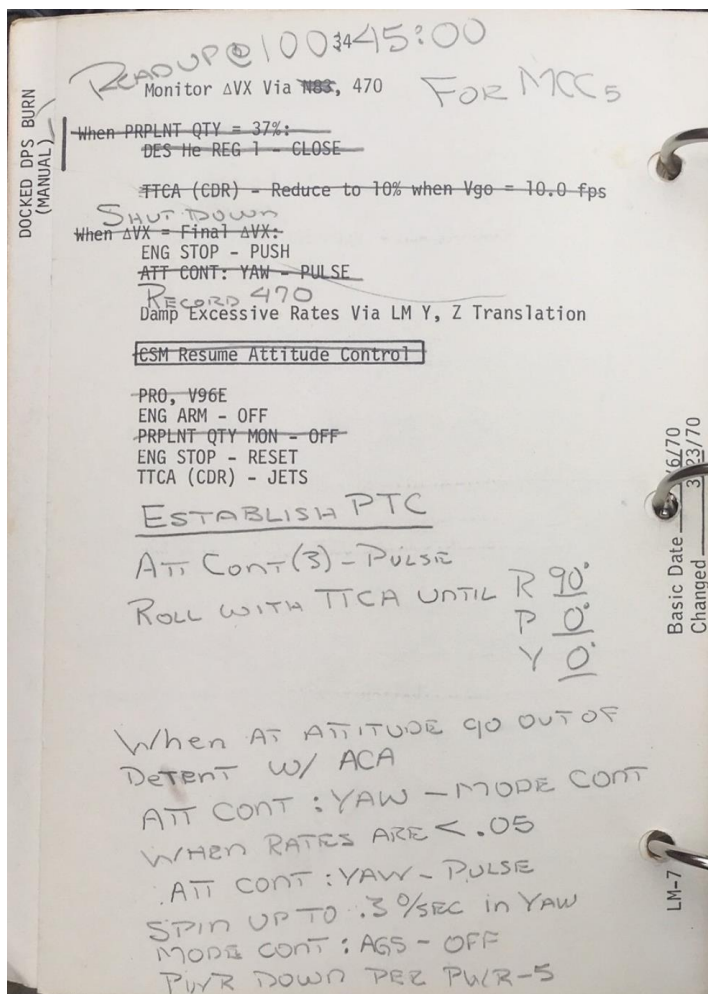 READ UP @ 100:34:45:00
FOR MCC5
Monitor ΔVX Via N83, 470
DOCKED DPS BURN
(MANUAL)
When PRPLNT QTY = 37%:
DES He REG 1 - CLOSE
TTCA (CDR) - Reduce to 10% when Vgo = 10.0 fps
SHUT DOWN
When ΔVX = Final ΔVX:
ENG STOP - PUSH
ATT CONT: YAW - PULSE
RECORD 470
Damp Excessive Rates Via LM Y, Z Translation
CSM Resume Attitude Control
PRO, V96E
ENG ARM - OFF
PRPLNT QTY MON - OFF
ENG STOP - RESET
TTCA (CDR) - JETS
ESTABLISH PTC
ATT CONT (3) - PULSE
ROLL WITH TTCA UNTIL R 90°
P 0°
Y 0°
When AT ATTITUDE GO OUT OF
DETENT W/ ACA
ATT CONT : YAW - MODE CONT
WHEN RATES ARE < .05
ATT CONT : YAW - PULSE
SPIN UP TO .3°/SEC in YAW
MODE CONT : AGS - OFF
PWR DOWN PER PWR-5
Basic Date 6/70
Changed 3/23/70
LM-7